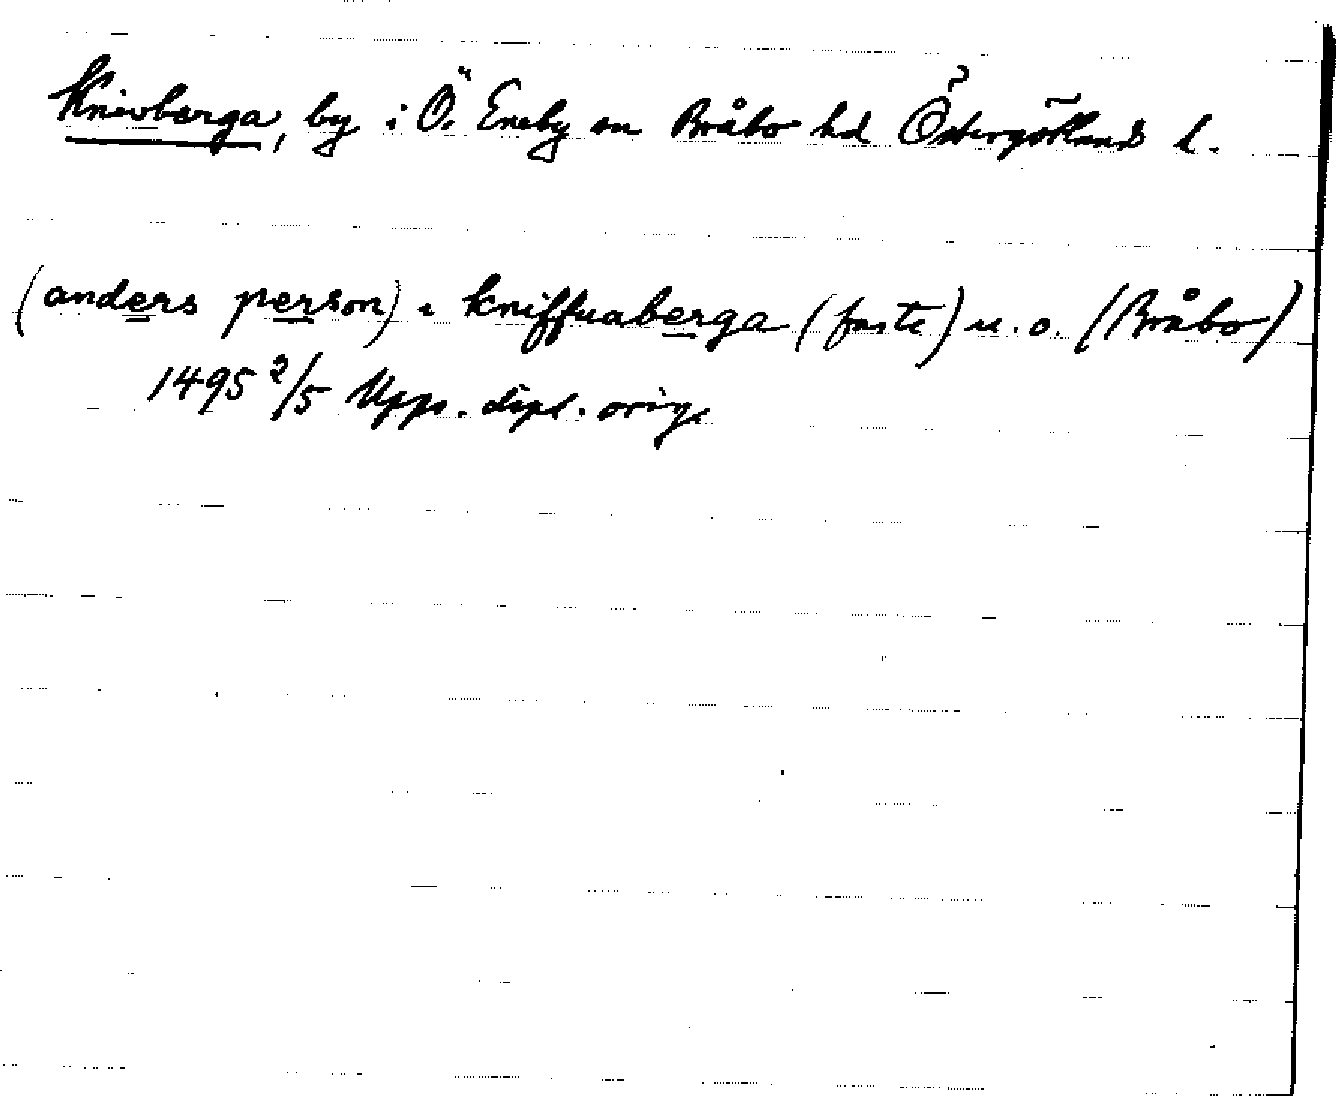 Knivberga, by i Ö. Eneby sn Bråbo hd Östergötlands l.
(anders person) i kniffuaberga (faste) u. o. (Bråbo)
1495 2/5 Upps. dipl. orig.